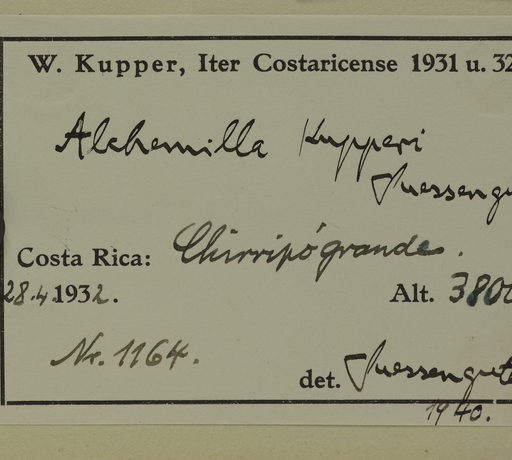 W. Kupper, Iter Costaricense 1931 u. 32
Alchemilla Kupperi
Suessengu
Costa Rica: Chirripó grande.
28.4.1932. Alt. 3800
Nr. 1164.
det. Suessengute
1940.